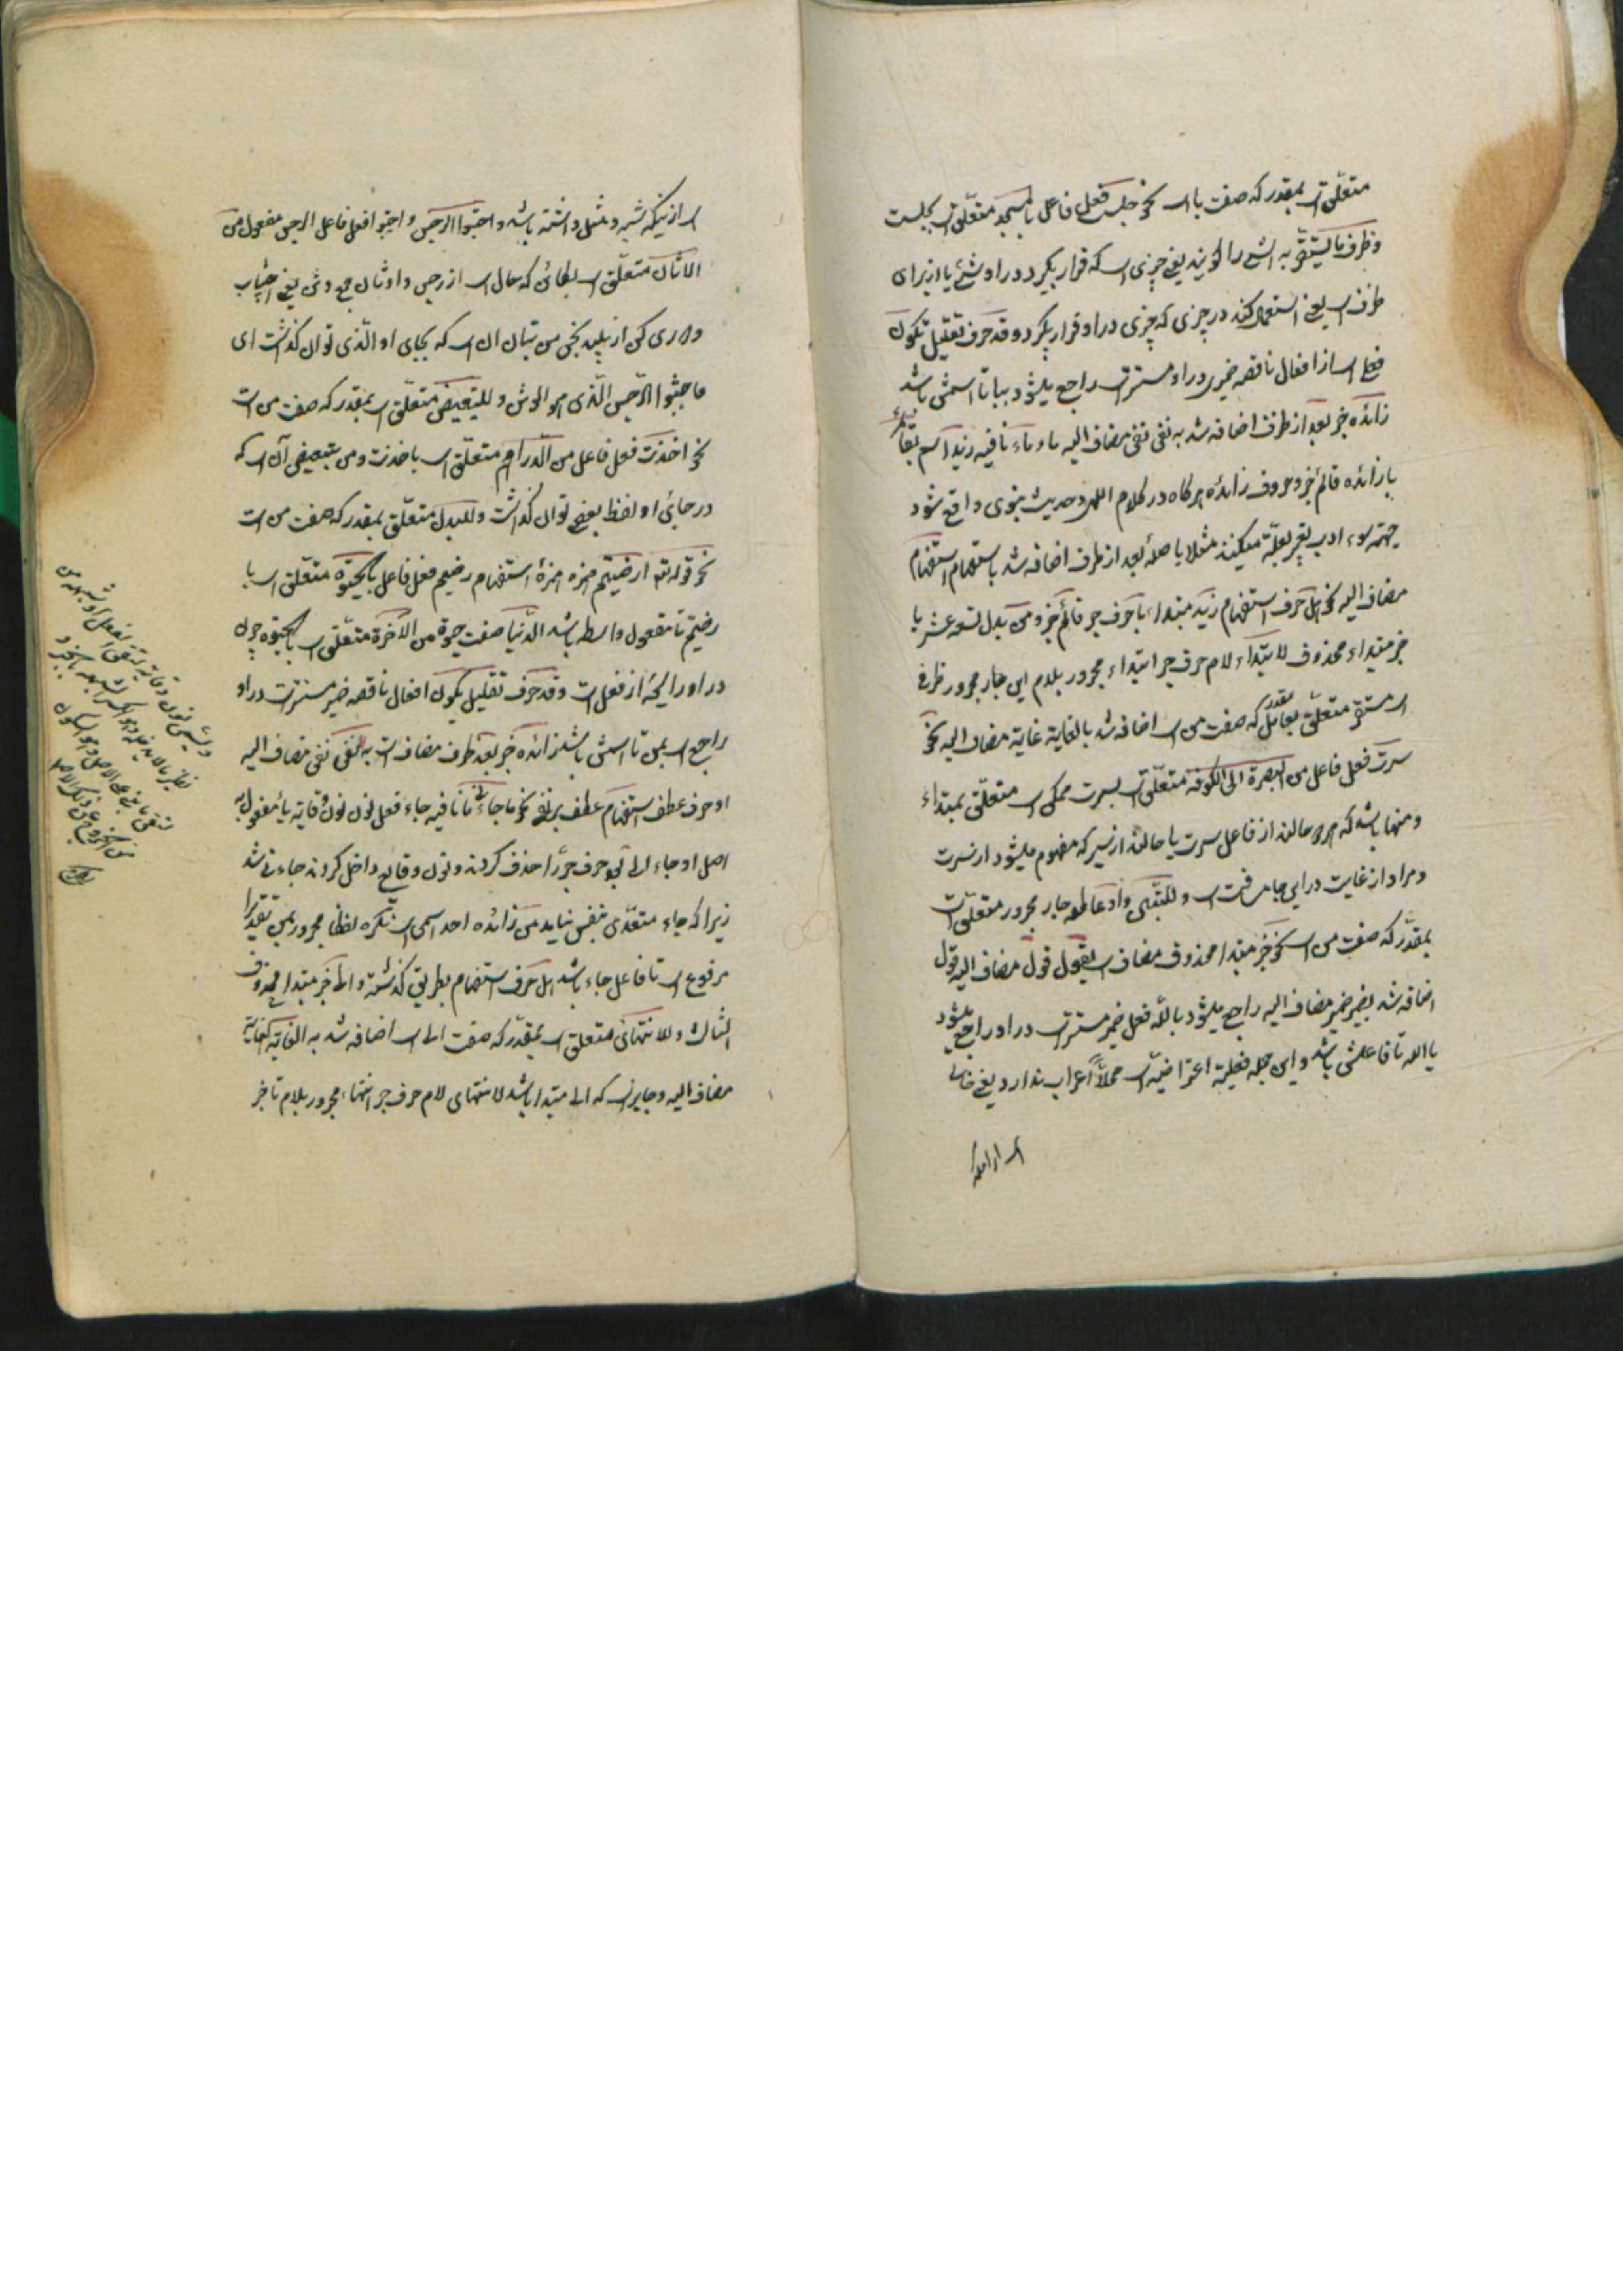 متعلّق است بمقدر که صفت با است نحو جلست فعل فاعل بالمسجد متعلّق است بجلست
وظرف ما یستقرّ به الشئ را کویند یعنی چیزی است که قرار بکیرد در او شئ یا از برای
ظرف است یعنی استعمال کنند در چیزی که چیزی در او قرار بکیرد وقد حرف تقلیل تکون
فعل است از افعال ناقصه ضمیری در او مستتر است راجع میشود ببا تا اسمش باشد
زائده خبر بعد از ظرف اضافه شد به نفی نفی مضاف الیه ما و ماء نافیه زید اسم بقائم
با زائده قائم خبر وحروف زائده هرکاه در کلام اللهی وحدیث نبوی واقع شود
جهة سوء ادب تعبیر بصلة میکنند مثلا با صلة بعد از ظرف اضافه شد باستفهام استفهام
مضاف الیه نحو هل حرف استفهام زید مبتداء با حرف جر قائم خبر ومن بدل تسعه عشر یا
خبر مبتداء محذوف لابتداء لام حرف جر ابتداء مجرور بلام این جار مجرور ظرف
است مستقر متعلّق بعامل مقدر که صفت من است اضافه شد بالغایة غایة مضاف الیه نحو
سرت فعل فاعل من البصرة الی الکوفه متعلّق است بسرت ممکن است متعلّق بمبتداء
ومنها باشد که هر دو حالند از فاعل سرت یا حالند از سیر که مفهوم میشود از سرت
ومراد از غایت در این جا مسافت است وللتبیین واو عاطفه جار مجرور متعلّق است
بمقدّر که صفت من است نحو خبر مبتدا محذوف مضاف است بقول قول مضاف الیه قول
اضافه شد بضمیر ضمیر مضاف الیه راجع میشود بالله فعل ضمیر مستتر است در او راجع میشود
یا الله تا فاعلش باشد و این جمله فعلیة اعتراضیّه است محلاً اعراب ندارد یعنی خدای
است از اینکه
است از اینکه شبه و مثل داشته باشد واجتنبوا الرجس واجتنبوا فعل فاعل الرجس مفعول من
الاوثان متعلّق است بکائن که حال است از رجس واوثان جمع وثن یعنی اجتناب
و دوری کن از پلیدی نحس من بتان ان است که بجای او الّذی توان کذاشت ای
فاجتنبوا الرّجس الّذی هو الوثن وللتبعیض متعلّق است بمقدر که صفت من است
نحو اخذت فعل فاعل من الدراهم متعلّق است باخذت ومن تبعیض آن است که
در جائ او لفظ بعض توان کذاشت وللبدل متعلّق بمقدر که صفت من است
نحو قوله تعالی ارضیتم همزه همزهٔ استفهام رضیتم فعل فاعل بالحیوة متعلّق است با
رضیتم تا مفعول واسطه باشد الدّنیا صفت حیوة من الآخرة متعلّق است بالحیوة چون
در او رایحهٔ از فعل است وقد حرف تقلیل یکون افعال ناقصه ضمیر مستتر است در او
راجع است بمن تا اسمش باشد زائده خبر بعد ظرف مضاف است به النفی نفی مضاف الیه
او حرف عطف استفهام عطف بر نفی نحو ما جائنی ما نافیه جاء فعل نون نون وقایه یا مفعول به
اصل او جاء الی بود حرف جرّ را حذف کردند ونون وقایه داخل کردند جاءنی شد
زیرا که جاء متعدّی بنفس نیاید من زائده احد اسمی است نکره لفظا مجرور بمن تقدیرا
مرفوع است تا فاعل جاء باشد هل حرف استفهام بطریق کذشته والی خبر مبتدا محذوف
الثالث وللانتهائ متعلق است بمقدّر که صفت الی است اضافه شد به الغایة غایة
مضاف الیه وجایز است که الی مبتدا باشد لانتهای لام حرف جر انتهاء مجرور بلام تا خبر